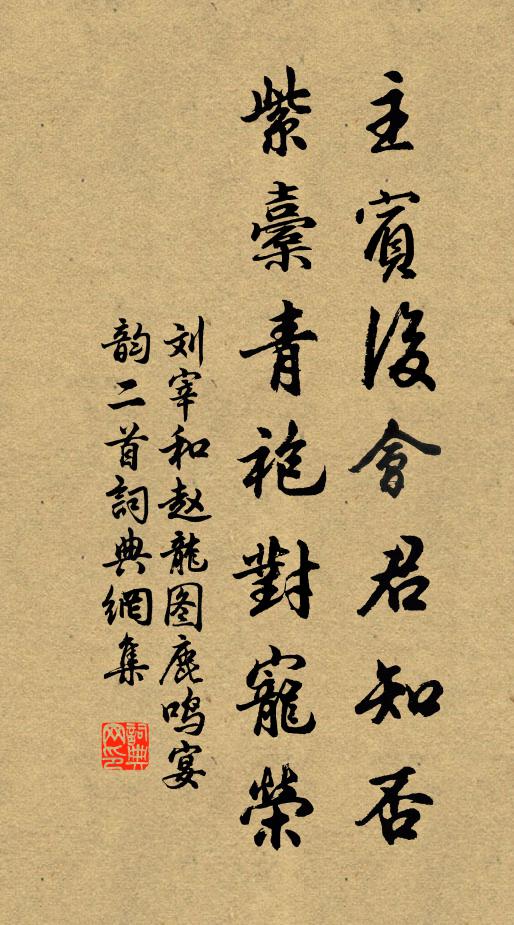 主賓後會君知否
紫橐青袍對寵榮
刘宰和赵龍图鹿鸣宴
韵二首詞典網集
詞典网印